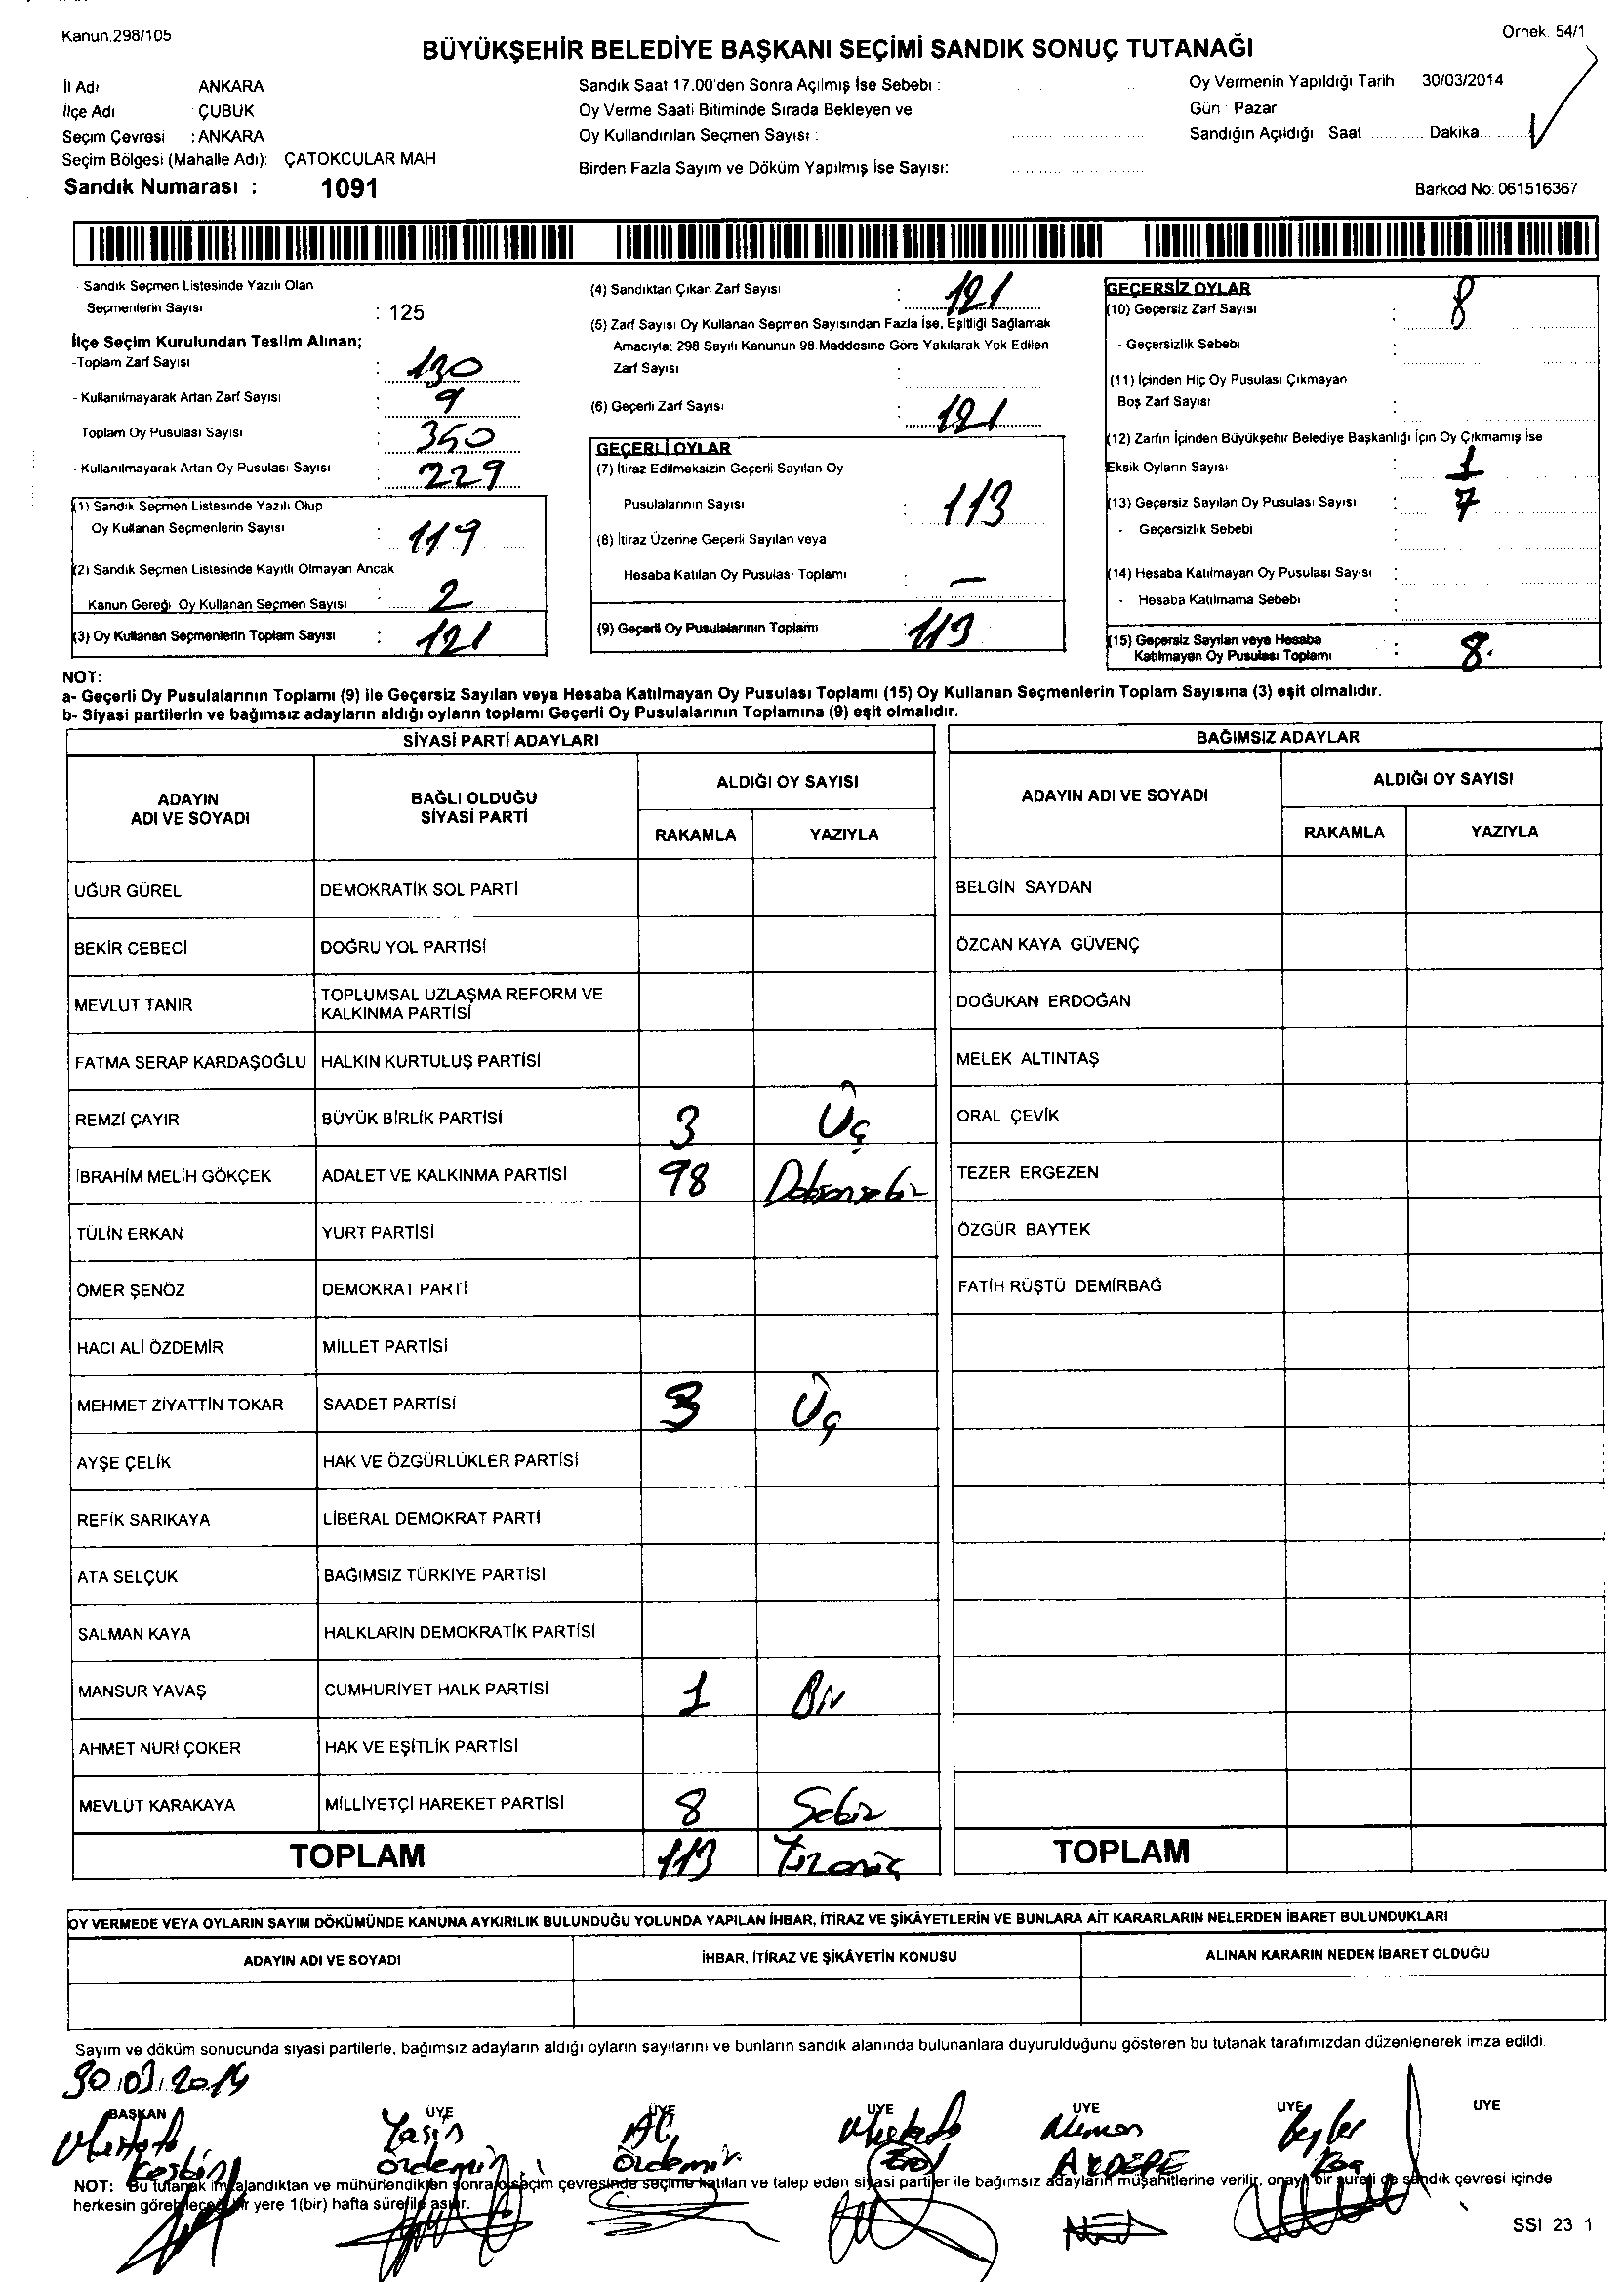 Kanun.298/105
Örnek. 54/1
BÜYÜKŞEHİR BELEDİYE BAŞKANI SEÇİMİ SANDIK SONUÇ TUTANAĞI
İl Adı ANKARA
İlçe Adı ÇUBUK
Seçim Çevresi : ANKARA
Seçim Bölgesi (Mahalle Adı): ÇATOKCULAR MAH
Sandık Numarası : 1091
Sandık Saat 17.00'den Sonra Açılmış İse Sebebi :
Oy Verme Saati Bitiminde Sırada Bekleyen ve
Oy Kullandırılan Seçmen Sayısı :
Birden Fazla Sayım ve Döküm Yapılmış İse Sayısı:
Oy Vermenin Yapıldığı Tarih : 30/03/2014
Gün : Pazar
Sandığın Açıldığı Saat .......... Dakika..........
Barkod No: 061516367
Sandık Seçmen Listesinde Yazılı Olan
Seçmenlerin Sayısı : 125
İlçe Seçim Kurulundan Teslim Alınan;
-Toplam Zarf Sayısı : 130
- Kullanılmayarak Artan Zarf Sayısı : 9
Toplam Oy Pusulası Sayısı : 350
- Kullanılmayarak Artan Oy Pusulası Sayısı : 229
(1) Sandık Seçmen Listesinde Yazılı Olup
Oy Kullanan Seçmenlerin Sayısı : 119
(2) Sandık Seçmen Listesinde Kayıtlı Olmayan Ancak
Kanun Gereği Oy Kullanan Seçmen Sayısı : 2
(3) Oy Kullanan Seçmenlerin Toplam Sayısı : 121
(4) Sandıktan Çıkan Zarf Sayısı : 121
(5) Zarf Sayısı Oy Kullanan Seçmen Sayısından Fazla İse, Eşitliği Sağlamak
Amacıyla; 298 Sayılı Kanunun 98.Maddesine Göre Yakılarak Yok Edilen
Zarf Sayısı :
(6) Geçerli Zarf Sayısı : 121
GEÇERLİ OYLAR
(7) İtiraz Edilmeksizin Geçerli Sayılan Oy
Pusulalarının Sayısı : 113
(8) İtiraz Üzerine Geçerli Sayılan veya
Hesaba Katılan Oy Pusulası Toplamı : –
(9) Geçerli Oy Pusulalarının Toplamı : 113
GEÇERSİZ OYLAR
(10) Geçersiz Zarf Sayısı : 8
- Geçersizlik Sebebi :
(11) İçinden Hiç Oy Pusulası Çıkmayan
Boş Zarf Sayısı :
(12) Zarfın İçinden Büyükşehir Belediye Başkanlığı İçin Oy Çıkmamış İse
Eksik Oyların Sayısı : 1
(13) Geçersiz Sayılan Oy Pusulası Sayısı : 7
- Geçersizlik Sebebi :
(14) Hesaba Katılmayan Oy Pusulası Sayısı :
- Hesaba Katılmama Sebebi :
(15) Geçersiz Sayılan veya Hesaba
Katılmayan Oy Pusulası Toplamı : 8
NOT:
a- Geçerli Oy Pusulalarının Toplamı (9) ile Geçersiz Sayılan veya Hesaba Katılmayan Oy Pusulası Toplamı (15) Oy Kullanan Seçmenlerin Toplam Sayısına (3) eşit olmalıdır.
b- Siyasi partilerin ve bağımsız adayların aldığı oyların toplamı Geçerli Oy Pusulalarının Toplamına (9) eşit olmalıdır.
SİYASİ PARTİ ADAYLARI
ADAYIN ADI VE SOYADI BAĞLI OLDUĞU SİYASİ PARTİ ALDIĞI OY SAYISI
RAKAMLA YAZIYLA
UĞUR GÜREL DEMOKRATİK SOL PARTİ
BEKİR CEBECİ DOĞRU YOL PARTİSİ
MEVLUT TANIR TOPLUMSAL UZLAŞMA REFORM VE KALKINMA PARTİSİ
FATMA SERAP KARDAŞOĞLU HALKIN KURTULUŞ PARTİSİ
REMZİ ÇAYIR BÜYÜK BİRLİK PARTİSİ 3 Üç
İBRAHİM MELİH GÖKÇEK ADALET VE KALKINMA PARTİSİ 98 Doksansekiz
TÜLİN ERKAN YURT PARTİSİ
ÖMER ŞENÖZ DEMOKRAT PARTİ
HACI ALİ ÖZDEMİR MİLLET PARTİSİ
MEHMET ZİYATTİN TOKAR SAADET PARTİSİ 3 Üç
AYŞE ÇELİK HAK VE ÖZGÜRLÜKLER PARTİSİ
REFİK SARIKAYA LİBERAL DEMOKRAT PARTİ
ATA SELÇUK BAĞIMSIZ TÜRKİYE PARTİSİ
SALMAN KAYA HALKLARIN DEMOKRATİK PARTİSİ
MANSUR YAVAŞ CUMHURİYET HALK PARTİSİ 1 Bir
AHMET NURİ ÇOKER HAK VE EŞİTLİK PARTİSİ
MEVLÜT KARAKAYA MİLLİYETÇİ HAREKET PARTİSİ 8 Sekiz
TOPLAM 113 Yüzonüç
BAĞIMSIZ ADAYLAR
ADAYIN ADI VE SOYADI ALDIĞI OY SAYISI
RAKAMLA YAZIYLA
BELGİN SAYDAN
ÖZCAN KAYA GÜVENÇ
DOĞUKAN ERDOĞAN
MELEK ALTINTAŞ
ORAL ÇEVİK
TEZER ERGEZEN
ÖZGÜR BAYTEK
FATİH RÜŞTÜ DEMİRBAĞ
TOPLAM
OY VERMEDE VEYA OYLARIN SAYIM DÖKÜMÜNDE KANUNA AYKIRILIK BULUNDUĞU YOLUNDA YAPILAN İHBAR, İTİRAZ VE ŞİKÂYETLERİN VE BUNLARA AİT KARARLARIN NELERDEN İBARET BULUNDUKLARI
ADAYIN ADI VE SOYADI İHBAR, İTİRAZ VE ŞİKÂYETİN KONUSU ALINAN KARARIN NEDEN İBARET OLDUĞU
Sayım ve döküm sonucunda siyasi partilerle, bağımsız adayların aldığı oyların sayılarını ve bunların sandık alanında bulunanlara duyurulduğunu gösteren bu tutanak tarafımızdan düzenlenerek imza edildi.
30.03.2014
BAŞKAN ÜYE ÜYE ÜYE ÜYE ÜYE ÜYE
Yasin Ali
Özdemir Özdemir AKDERE
NOT: Bu tutanak imzalandıktan ve mühürlendikten sonra o seçim çevresinde seçime katılan ve talep eden siyasi partiler ile bağımsız adayların müşahitlerine verilir, onaylı bir sureti de sandık çevresi içinde
herkesin görebileceği bir yere 1(bir) hafta süre ile asılır.
SSI 23 1